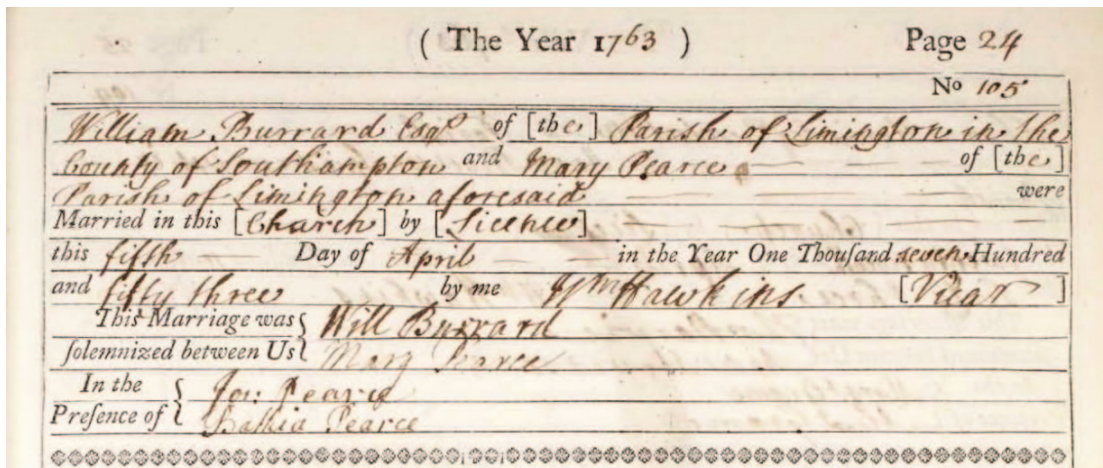 ( The Year 1763 ) Page 24
No 105
William Burrard Esqr of [the] Parish of Limington in the
County of Southampton and Mary Pearce of [the]
Parish of Limington aforesaid were
Married in this [Church] by [Licence]
this fifth Day of April in the Year One Thouſand seven Hundred
and fifty three by me Wm Hawkins [Vicar]
This Marriage was Will Burrard
ſolemnized between Us Mary Pearce
In the Pearce
Preſence of Pearce